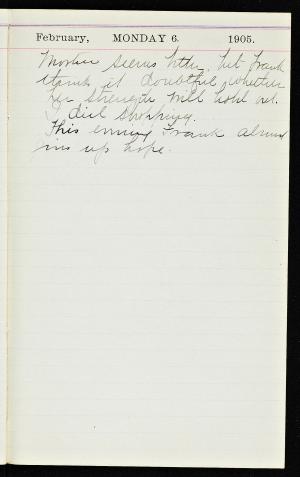 February, MONDAY 6. 1905.
Mother seems better, but Frank
thinks it doubtful whether
her strength will hold out.
I did shopping.
This evening Frank almost
gives up hope.